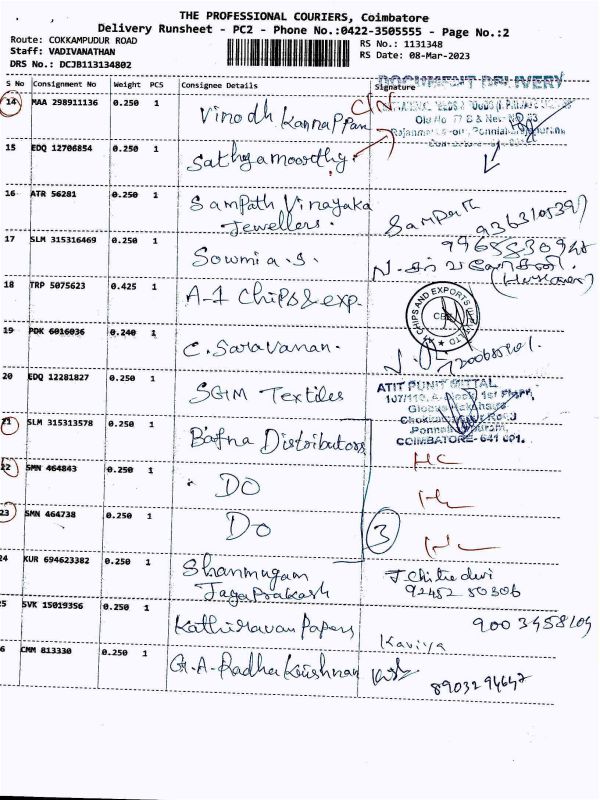 THE PROFESSIONAL COURIERS, Coimbatore
Delivery Runsheet - PC2 - Phone No.:0422-3505555 - Page No.:2
Route: COKKAMPUDUR ROAD
Staff: VADIVANATHAN
DRS No.: DCJB113134802
RS No.: 1131348
RS Date: 08-Mar-2023
S No Consignment No Weight PCS Consignee Details Signature
DOCUMENT DELIVERY
14 MAA 298911136 0.250 1 Vinodh Kannappan C/N
15 EDQ 12706854 0.250 1 Sathyamoorthy.
16 ATR 56281 0.250 1 Sampath Vinayaka
Jewellers. Sampath
9363105397
17 SLM 315316469 0.250 1 Sowmia.S.
18 TRP 5075623 0.425 1 A-1 Chips & exp.
CHIPS AND EXPORTS
19 PDK 6016036 0.240 1 C. Saravanan.
20 EDQ 12281827 0.250 1 SGM Textiles
ATIT PUNIT MITTAL
COIMBATORE- 641 001.
21 SLM 315313578 0.250 1 Bafna Distributors HC
22 SMN 464843 0.250 1 DO
23 SMN 464738 0.250 1 DO 3
24 KUR 694623382 0.250 1 Shanmugam
Jagaprakash J Chitradevi
92452 50306
25 SVK 15019396 0.250 1 Kathiravan Papers Kaviya
9003458109
26 CMM 813330 0.250 1 G.A. Radha Krishnan
8903294647